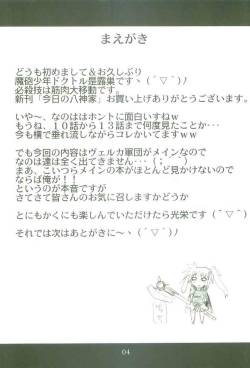 まえがき
どうも初めまして＆お久しぶり
魔砲少年ドクトル是露菓ですヽ(´▽`)ﾉ
必殺技は筋肉大移動です。
新刊「今日の八神家」お買い上げありがとうございます。
いや～、なのははホントに面白いすねw
もうね、１０話から１３話まで何度見たことか･･･
今も横で垂れ流しながらコレかいてますw
でも今回の内容はヴェルカ軍団がメインなので
なのは達は全く出てきません･･･(；´⌒｀)
まぁ、こいつらメインの本がほとんど見かけないので
ならば俺が！！
というのが本音です
さてさて皆さんのお気に召しますかどうか
とにもかくにも楽しんでいただけたら光栄です(´▽`)
それでは次はあとがきに～ヽ(´▽`)ﾉ
04